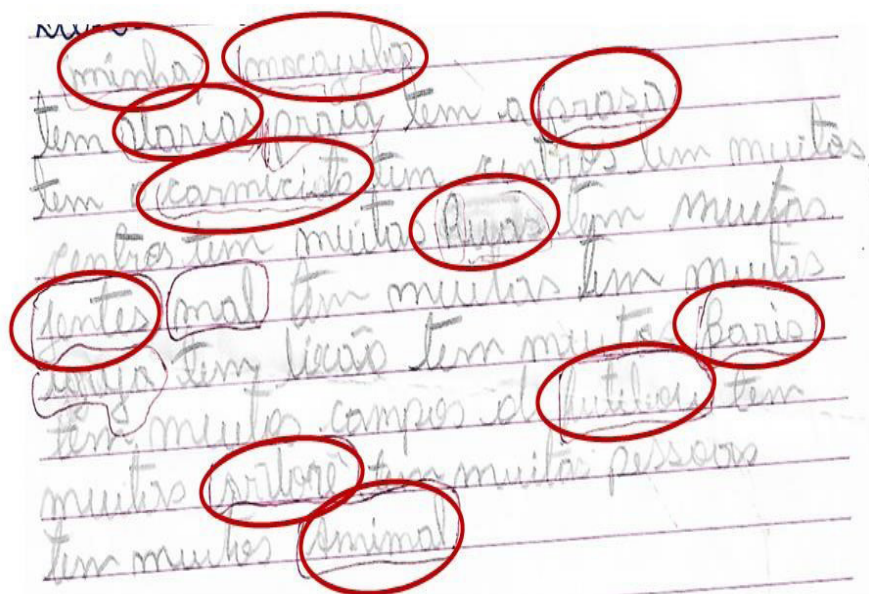 minha macaguba
tem varias praia tem a praza
tem centros tem muitas
centros tem muitas Ruas tem muitas
jentes mal tem muitas tem muitos
igreja tem licão tem muitos Baris
tem muitos campos de futibou tem
muitas artorê tem muitas pessoas
tem muitos animal